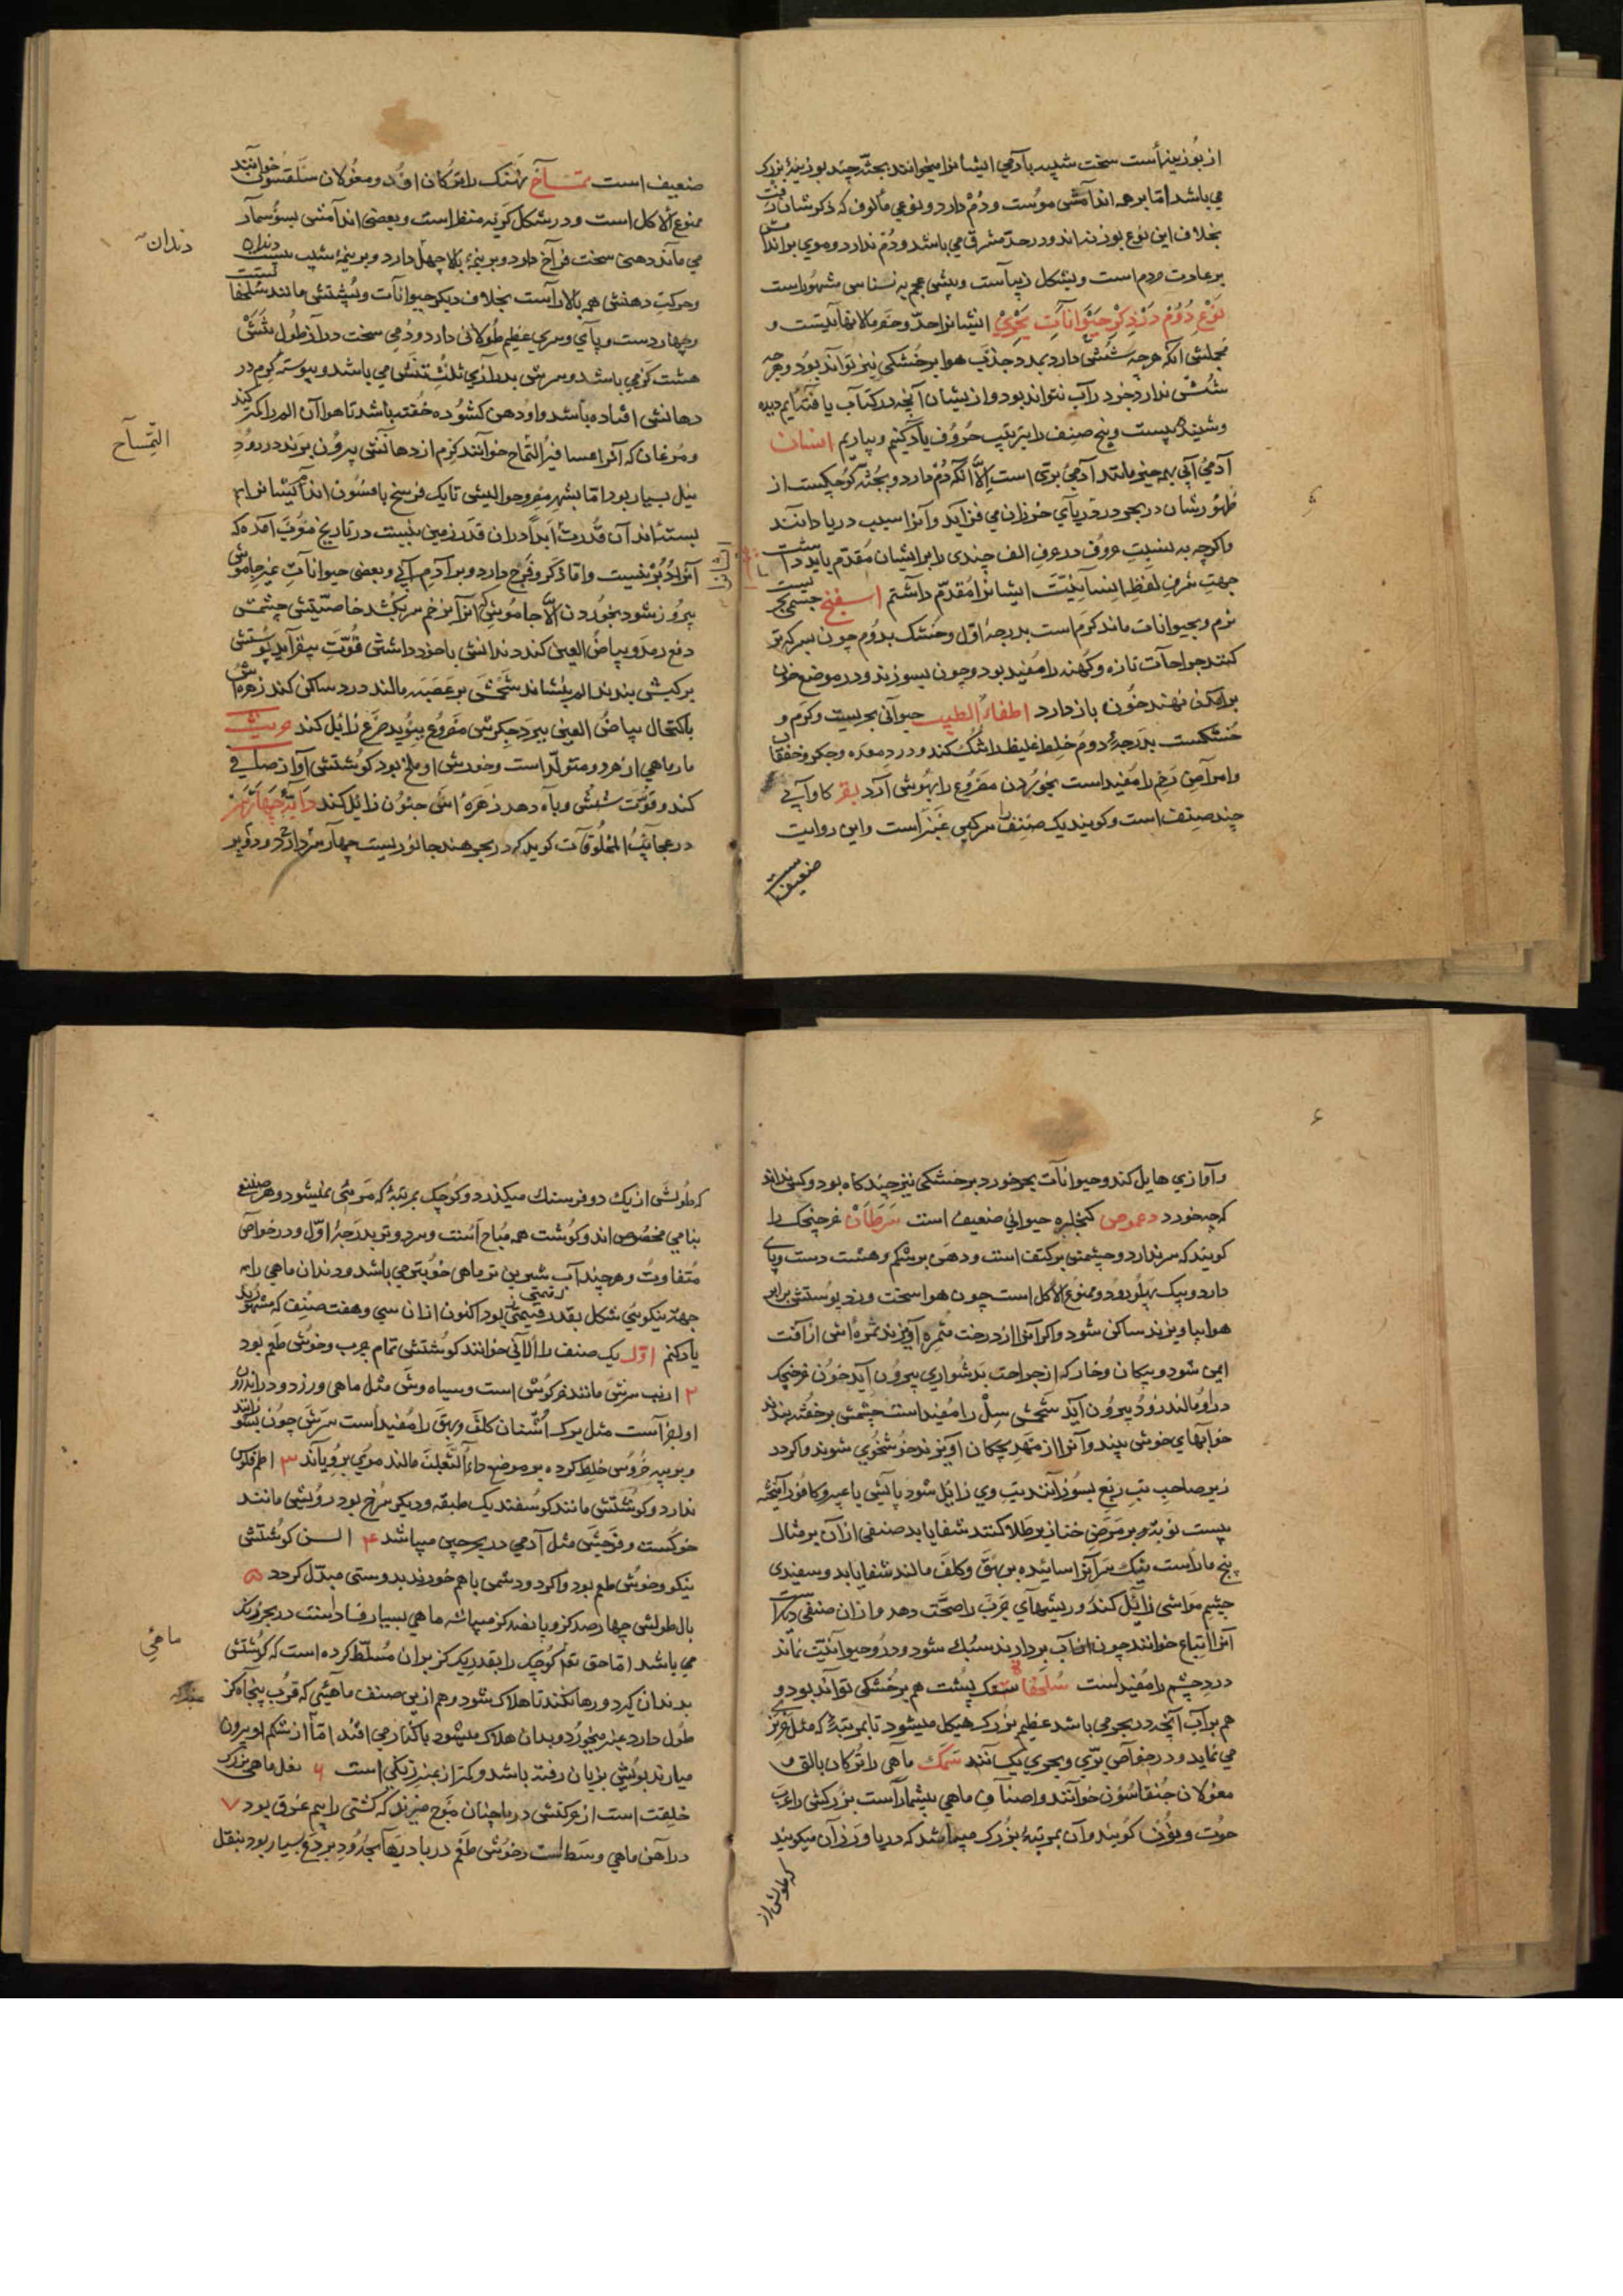 از بوزینه است سخت شبیه بآدمی ایشانرا میخوانند بجثه چند بوزینهٔ بزرک
می باشد اما بر همه اندامش مویست ودم دارد ونوعی مألوف که ذکر شان رفت
بخلاف این نوع بوزنه اند ودر حد مشرق می باشد ودم ندارد وموی بر اندامش
بر عادت مردم است وبشکل زیباست وپیش عجم به نسناس مشهوراست
نوع دوم در ذکر حیوانات بحری ایشانرا حد وحصر مالانهایتست و
مجملش آنکه هرچه شش دارد بمدد جذب هوا بر خشکی نیز تواند بود وهرچه
شش ندارد جز در آب نتواند بود واز یشان آنچه در کتاب یافته ایم دیده
وشنیده بیست وپنج صنف را بترتیب حروف یاد کنیم وبیاریم انسان
آدمی آبی بهمه چیز مانند آدمی بری است الا آنکه دم دارد وبجثه کوچکست از
ظهورشان در بحر ودر دریای خوزان می فزاید وآنرا سیب دریا دانند
واکرچه به نسبت حروف در حرف الف چندی را بر ایشان مقدم بایدداشت
جهت شرف لفظ انسانیت ایشانرا مقدم داشتم اسفنج جسمی بحریست
نرم وبحیوانات ماند کرم است بدرجهٔ اول وخشک بدوم چون بسرکه تر
کنند جراحات تازه وکهنه را مفید بود وچون بسوزند ودر موضع خون
بر امدن نهند خون باز دارد اظفار الطیب حیوانی بحریست وکرم و
خشکست بدرجهٔ دوم خلط غلیظ را تنک کند ودرد معده وجکر وخفقان
وامراض رحم را مفید است بخوردن مصروع را بهوش آرد بقر کاو آبی
چند صنف است وکویند یک صنف را سرکین عنبر است واین روایت
ضعیف است
ضعیف است تمساح نهنک را ترکان اود ومغولان سلقسون خوانند
ممنوع الاکل است ودر شکل کریه منظر است وبعضی اندامش بسوسمار
می ماند دهنی سخت فراخ دارد وبر نیمهٔ بالا چهل دارد وبر نیمهٔ شیب بیست دندان
وحرکت دهنش همه بالا راست بخلاف دیکر حیوانات وپشتش مانند سلحفا
وچهار دست وپای وسری عظیم طولانی دارد ودمی سخت دراز طول تنش
هشت کز می باشد وسرش بدرازی ثلث تنش می باشد وپیوسته کرم در
دهانش افتاده باشد واو دهن کشوده خفته باشد تا هوا آن الم را کمتر کند
ومرغان که آنرا خوانند کرم از دهانش بیرون برند در رود
نیل بسیار بود اما بشهر مصر وحوالیش تا یک فرسنخ بافسون اندام ایشانرا
بسته اند آن قدرت ابدا در ان قدر زمین نیست در تاریخ مغرب آمده که
آنرا دبر نیست واما ذکر وفرج دارد وبر آدمی آبی وبعضی حیوانات غیر جاموش
پیروز شود بخوردن الا جاموش که آنرا بزخم سر بکشد خاصیتش چشمش
دفع رمد وبیاض العین کند دندانش با خود داشتن قوت بیفزاید پوستش
بر کبش بندند الم بنشاند شحمش بر عصبه مالند درد ساکن کند زهره اش
باکتحال بیاض العین ببرد جکرش مصروع ببوید صرع زائل کند جریث
مارماهی از هر دو متولد است وخورش او ملخ بود کوشتش آواز صافی
کند وقوت شش وباه دهد زهره اش جنون زائل کند دابه چهارسر
در عجایب المخلوقات کوید که در بحر هند جانوریست چهار سر دارد ودو پر
دندان
التمساح
وآوازی هایل کند وحیوانات بحر خورد بر خشکی نیز چند کاه بود وکس نداند
که چه خورد دعموص کفجلیزه حیوانی ضعیف است سرطان خرچنک را
کویند که سر ندارد وچشمش بر کتف است ودهن بر شکم وهشت دست وپای
دارد وبیک پهلو رود وممنوع الاکل است چون هوا سخت وزد پوستش برابر
هوا بیاویزند ساکن شود واکر آنرا از درخت مثمره آویزند ثمره اش از آفت
ایمن شود وپیکان وخار که از جراحت بدشواری بیرون آید خون خرچنک
در او مالند زود بیرون آید شحمش سل را مفید است چشمش بر خفته بندند
خوابهای خوش بیند وآنرا از مهد بچکان آویزند خوشخوی شوند واکر در
زیر صاحب تب ربع بسوزانند تب وی زائل شود پایش با عبیر وکافور آمیخته
بیست نوبه وبر مرض خنازیر طلا کنند شفا یابد صنفی از آن بر مثال
پنج ماراست بیک سر آنرا سائیده بر بهق وکلف مالند شفا یابد وسفیدی
چشم مواشی زائل کند وریشهای جرب را صحت دهد وازان صنفی دیکر است
آنرا اتباع خوانند چون از آب بر دارند سنک شود ودر او حیوانیت نماند
درد چشم را مفید است سلحفا سنک پشت هم بر خشکی تواند بود و
هم بر آب آنچه در بحر می باشد عظیم بزرک هیکل میشود تا بمرتبهٔ که مثل جزیره
می نماید ودر خواص بری وبحری یکسانند سمک ماهی را ترکان بالق و
مغولان جنقاسون خوانند واصناف ماهی بیشماراست بزرکش را عرب
حوت ونون کویند وآن بمرتبهٔ بزرک میباشد که دریا ورزان میکویند
که طولش از
که طولش از یک دو فرسنک میکذرد وکوچک بمرتبهٔ که مرئی نمیشود وهر صنفی
بنامی مخصوص اند وکوشت همه مباح است وسرد وتر بدرجهٔ اول ودر خواص
متفاوت وهرچند آب شیرین تر ماهی خوبتر می باشد ودندان ماهی را به
جهة نیکویی شکل بقدر قیمتی بود اکنون ازان سی وهفت صنف که مشهورند
یاد کنم اول یک صنف را الآنی خوانند کوشتش تمام چرب وخوش طعم بود
۲ ارنب سرش مانند خرکوش است وسیاه وتن مثل ماهی ورزد ودر اندرون
او اجزاست مثل برک اشنان کلف وبهق را مفید است سرش چون بسوزانند
وبه پیه خروس خلط کرده بر موضع داء الثعلب مالند موی برویاند ۳ اطم فلوس
ندارد وکوشتش مانند کوسفند یک طبقه ودیکر سرخ بود رویش مانند
خوکست وفرجش مثل آدمی در بحر چین میباشد ۴ السن کوشتش
نیکو وخوش طعم بود واکر دو دشمن باهم خورند بدوستی مبدل کردد ۵
بال طولش چهارصد کز وپانصد کز میباشد ماهی بسیار فساد است در بحر زنک
می باشد اما حق تع کوچک را بقدر یک کز بران مسلط کرده است که کوشتش
بدندان کیرد ورها نکند تا هلاک شود وهم از ین صنف ماهیی که قرب پنجاه کز
طول دارد عنبر میخورد وبدان هلاک میشود با کنار می افتد اما از شکم او بیرون
میارند بویش بزیان رفته باشد وکمتر از عنبر زنکی است ۶ بغل ماهی بزرک
خلقت است از حرکتش دریا چنان موج میزند که کشتی را بیم غرق بود ۷
در آهن ماهی وسط است وخوش طعم در یادرنها بجرود بردع بسیار بود بنقل
ماهی